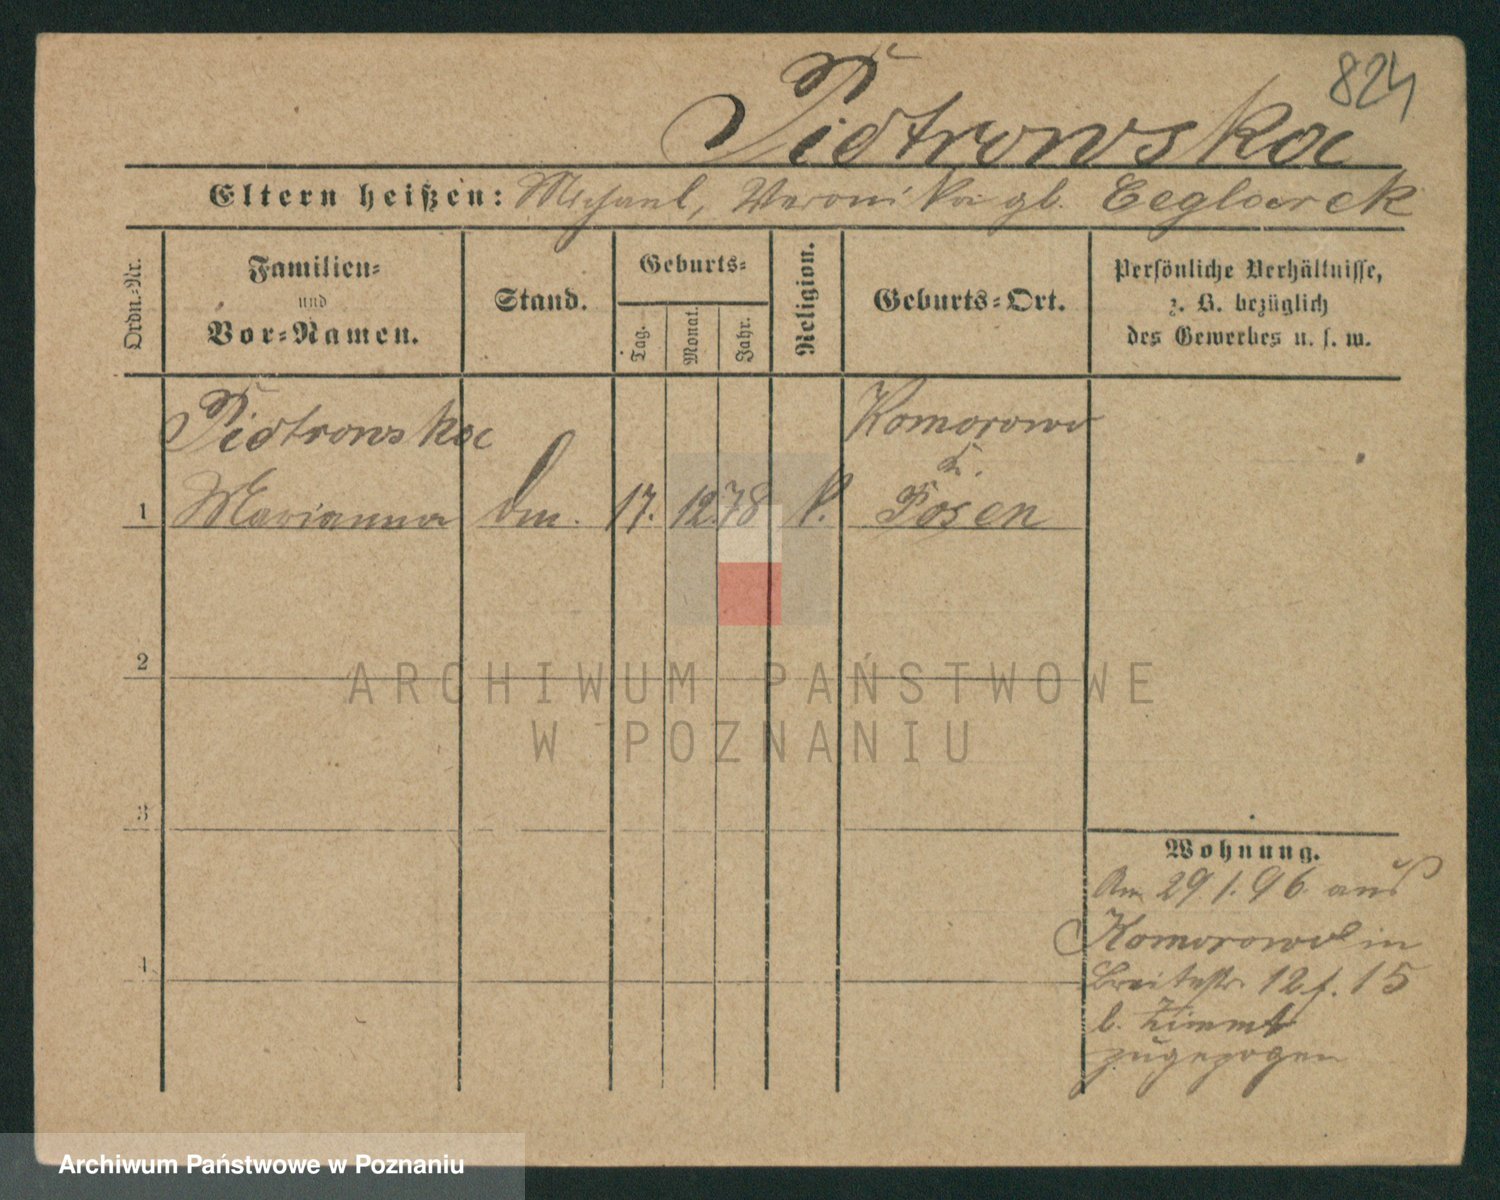 824
Piotrowska
Eltern heißen: Michael, Veronika gb. Ceglarek
Ordn.-Nr.
Familien-
und
Vor-Namen.
Stand.
Geburts-
Tag.
Monat.
Jahr.
Religion.
Geburts-Ort.
Persönliche Verhältnisse,
z. B. bezüglich
des Gewerbes u. s. w.
Piotrowska
Komorowo
K.
1 Marianna Dm. 17. 12. 78 k. Posen
2
3
4
Wohnung.
Am 29/1. 96. aus
Komorowo in
Breitestr. 12/f. 15
b. Zimmt
zugezogen
ARCHIWUM PAŃSTWOWE
W POZNANIU
Archiwum Państwowe w Poznaniu